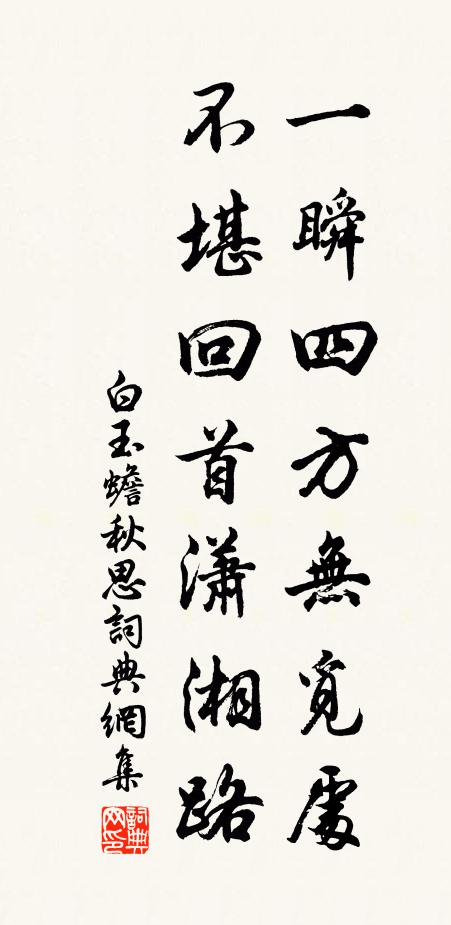 一瞬四方無覓處
不堪回首瀟湘路
白玉蟾秋思詞典網集
詞典
网印